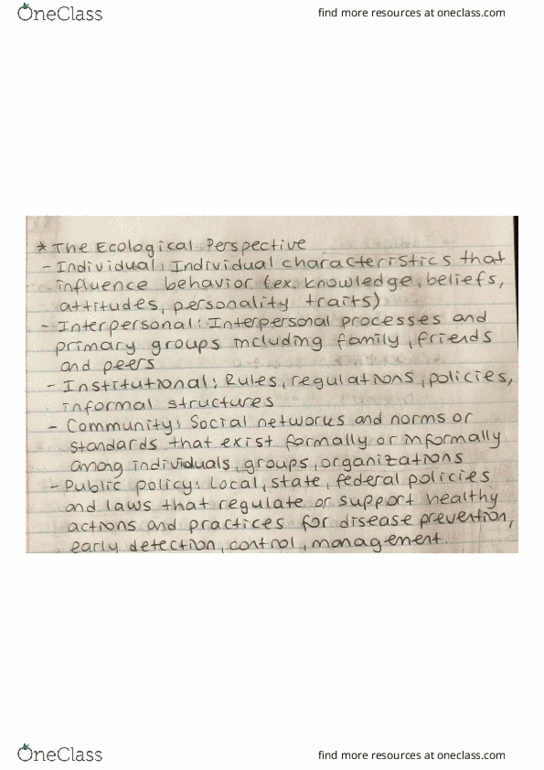 OneClass
find more resources at oneclass.com
* The Ecological Perspective
- Individual: Individual characteristics that
influence behavior (ex. knowledge, beliefs,
attitudes, personality traits)
- Interpersonal: Interpersonal processes and
primary groups including family, friends
and peers
- Institutional: Rules, regulations, policies,
informal structures
- Community: Social networks and norms or
standards that exist formally or informally
among individuals, groups, organizations
- Public policy: Local, state, federal policies
and laws that regulate or support healthy
actions and practices for disease prevention,
early detection, control, management.
OneClass
find more resources at oneclass.com